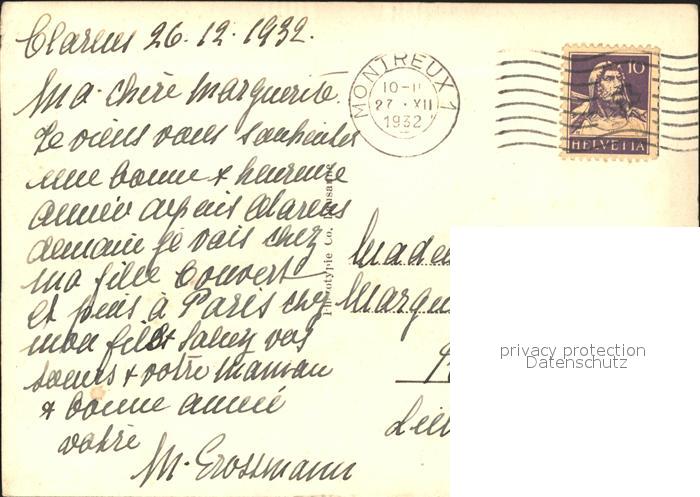 Clarens 26.12.1932.
Ma chère Marguerite
Je viens vous souhaiter
une bonne + heureuse
année depuis Clarens
demain je vais chez
ma fille Couvert
et puis à Paris chez
mon fils + saluez vos
sœurs + votre Maman
+ bonne année
votre
M. Grossmann
MONTREUX 1
10-11
27.XII
1932
10
HELVETIA
Phototypie Co. Lausanne
Made
Margu
privacy protection
Datenschutz